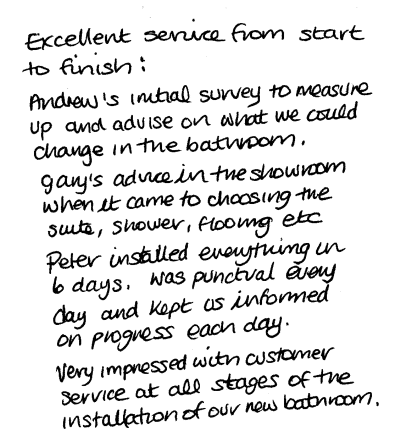 Excellent service from start
to finish:
Andrew's initial survey to measure
up and advise on what we could
change in the bathroom.
Gary's advice in the showroom
when it came to choosing the
suite, shower, flooring etc
Peter installed everything in
6 days. Was punctual every
day and kept us informed
on progress each day.
Very impressed with customer
service at all stages of the
installation of our new bathroom.